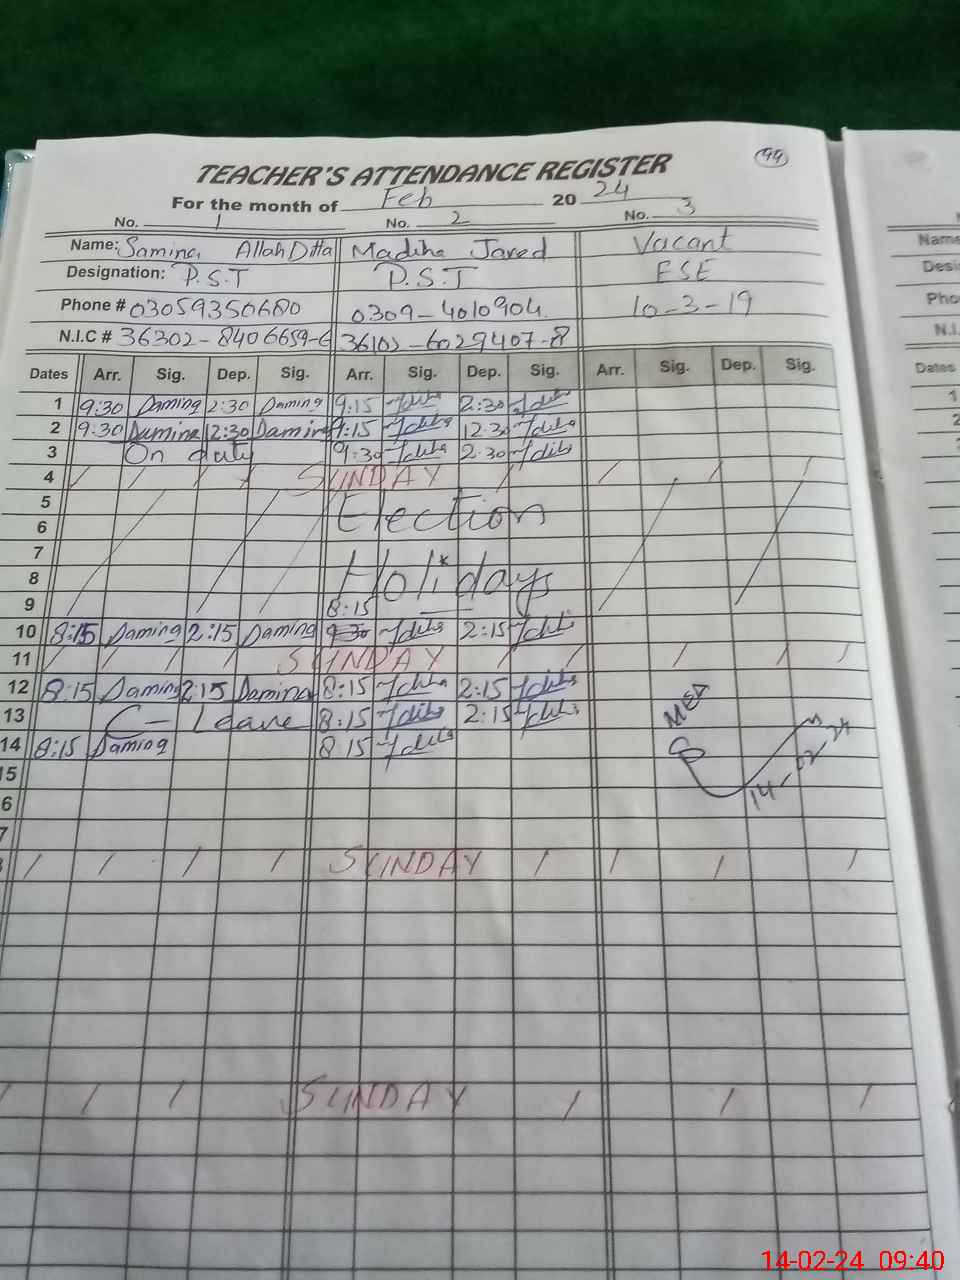 99
TEACHER'S ATTENDANCE REGISTER
For the month of Feb 2024
No. 1 No. 2 No. 3
Name: Samina Allah Ditta Madiha Javed Vacant
Designation: P.S.T P.S.T ESE
Phone # 03059350680 0309-4010904 10-3-19
N.I.C # 36302-8406659-6 36102-6029407-8
Dates Arr. Sig. Dep. Sig. Arr. Sig. Dep. Sig. Arr. Sig. Dep. Sig.
1 9:30 Samina 2:30 Samina 9:15 2:30
2 9:30 Samina 12:30 Samina 9:15 12:30
3 On duty 9:30 2:30
4 SUNDAY
5 Election
6
7
8 Holidays
9 8:15
10 8:15 Samina 2:15 Samina 9:30 2:15
11 SUNDAY
12 8:15 Samina 2:15 Samina 8:15 2:15
13 C-Leave 8:15 2:15
14 8:15 Samina 8:15
MEA
14-02-24
15
6
7
SUNDAY
SUNDAY
Name
Desi
Pho
N.I.
Dates
1
2
3
4
14-02-24 09:40